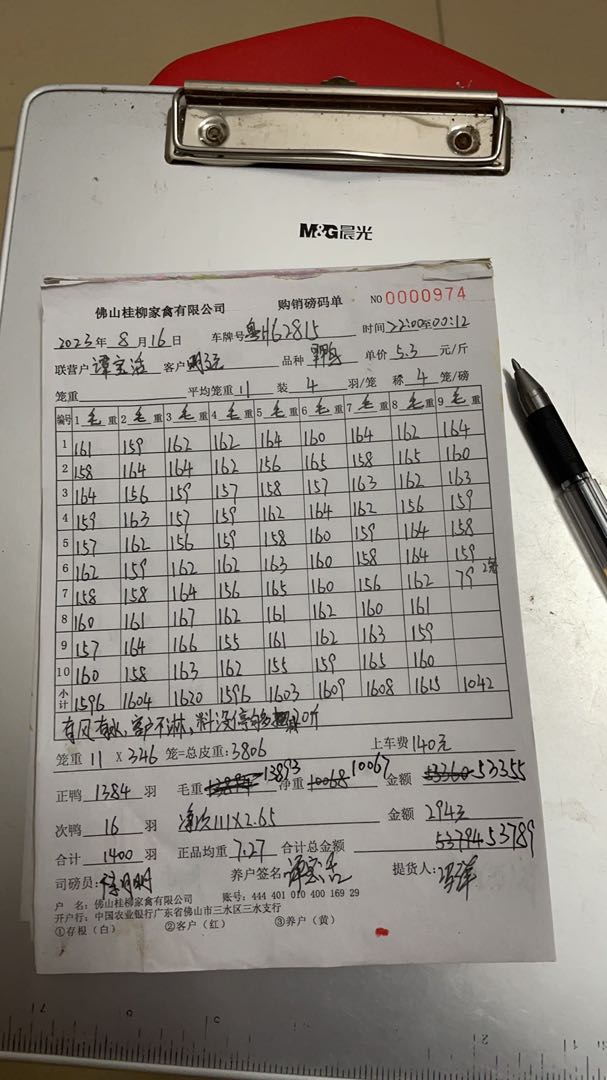 M&G晨光
佛山桂柳家禽有限公司 购销磅码单 NO 0000974
2023年8月16日 车牌号 粤H62815 时间 22:00至00:12
联营户 谭宝活 客户 品种 单价 5.3 元/斤
笼重 平均笼重 11 装 4 羽/笼 称 4 笼/磅
编号 1 毛重 2 毛重 3 毛重 4 毛重 5 毛重 6 毛重 7 毛重 8 毛重 9 毛重
1 161 159 162 162 164 160 164 162 164
2 158 164 164 162 156 165 158 165 160
3 164 156 159 157 158 157 163 162 163
4 159 163 157 159 162 164 162 156 159
5 157 162 156 159 158 160 159 164 158
6 162 159 162 162 163 160 158 164 159
7 158 158 164 156 165 160 156 162 79 2笼
8 160 161 167 162 161 162 160 161
9 157 164 166 155 161 162 163 159
10 160 158 163 162 155 159 165 160
小计 1596 1604 1620 1596 1603 1609 1608 1615 1042
有风有水,客户不淋,料没停够 20斤
笼重 11 X 346 笼=总皮重:3806 上车费 140元
正鸭 1384 羽 毛重 13894 13893 净重 10068 10067 金额 53360 53355
次鸭 16 羽 净次111X2.65 金额 294元
合计 1400 羽 正品均重 7.27 合计总金额 53794 53789
司磅员: 养户签名: 谭宝活 提货人:
户 名: 佛山桂柳家禽有限公司 账号: 444 401 010 400 169 29
开户行: 中国农业银行广东省佛山市三水区三水支行
①存根(白) ②客户(红) ③养户(黄)